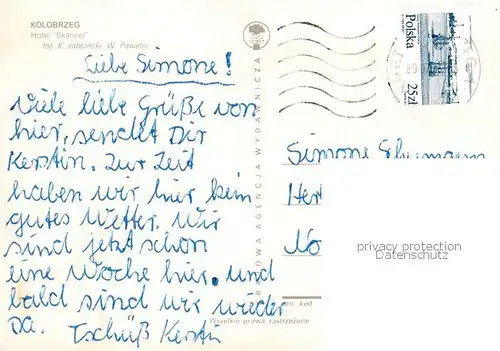 KOLOBRZEG
Hotel "Skanpol"
fot. K. Jabłoński, W. Pawelec
Liebe Simone!
Viele liebe Grüße von
hier, sendet Dir
Kerstin. Zur Zeit
haben wir hier kein
gutes Wetter. Wir
sind jetzt schon
eine Woche hier, und
bald sind wir wieder
da. Tschüß Kerstin
KRAJOWA AGENCJA WYDAWNICZA
Polska
25zł
89
Simone
Her
No
privacy protection
Datenschutz
kod
Wszelkie prawa zastrzeżone